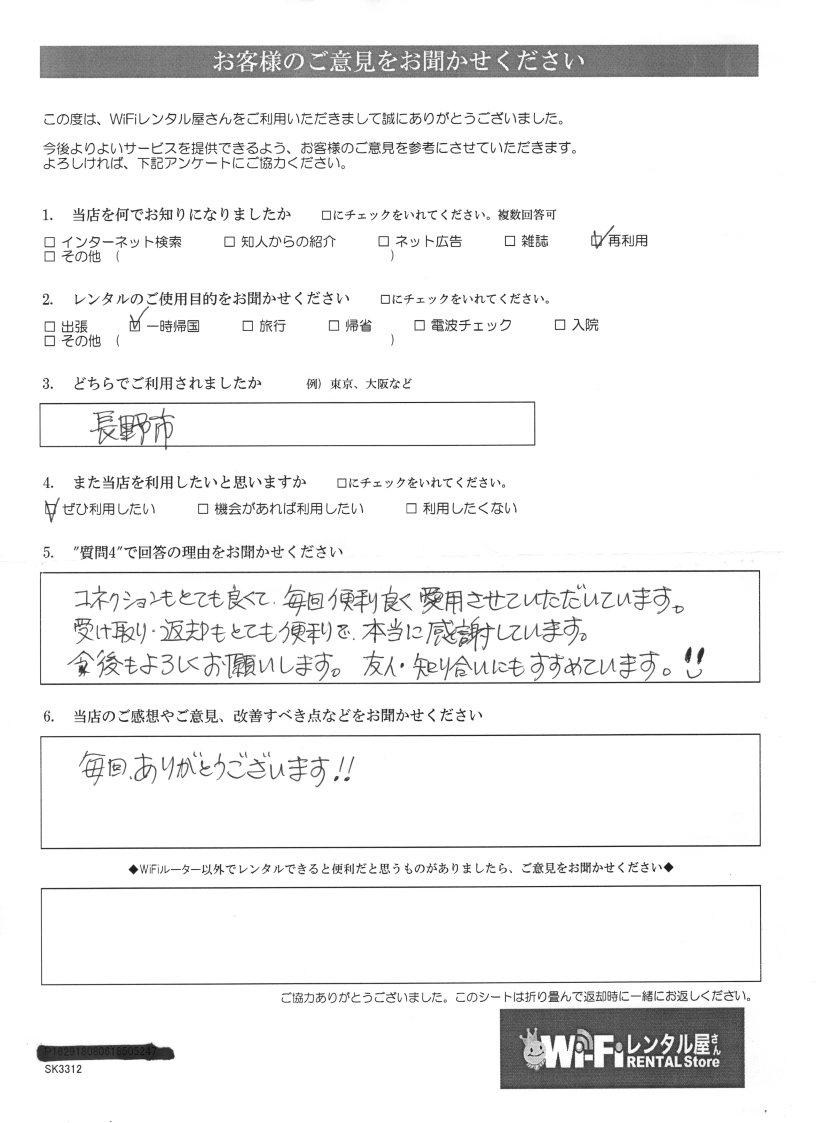 お客様のご意見をお聞かせください
この度は、WiFiレンタル屋さんをご利用いただきまして誠にありがとうございました。
今後よりよいサービスを提供できるよう、お客様のご意見を参考にさせていただきます。
よろしければ、下記アンケートにご協力ください。
1. 当店を何でお知りになりましたか □にチェックをいれてください。複数回答可
□ インターネット検索 □ 知人からの紹介 □ ネット広告 □ 雑誌 ☑ 再利用
□ その他 ( )
2. レンタルのご使用目的をお聞かせください □にチェックをいれてください。
□ 出張 ☑ 一時帰国 □ 旅行 □ 帰省 □ 電波チェック □ 入院
□ その他 ( )
3. どちらでご利用されましたか 例) 東京、大阪など
長野市
4. また当店を利用したいと思いますか □にチェックをいれてください。
☑ ぜひ利用したい □ 機会があれば利用したい □ 利用したくない
5. "質問4"で回答の理由をお聞かせください
コネクションもとても良くて、毎回便利良く愛用させていただいています。
受け取り・返却もとても便利で、本当に感謝しています。
今後もよろしくお願いします。 友人・知り合いにもすすめています。!!
6. 当店のご感想やご意見、改善すべき点などをお聞かせください
毎回、ありがとうございます!!
◆WiFiルーター以外でレンタルできると便利だと思うものがありましたら、ご意見をお聞かせください◆
ご協力ありがとうございました。このシートは折り畳んで返却時に一緒にお返しください。
SK3312
Wi-Fiレンタル屋さん
RENTAL Store